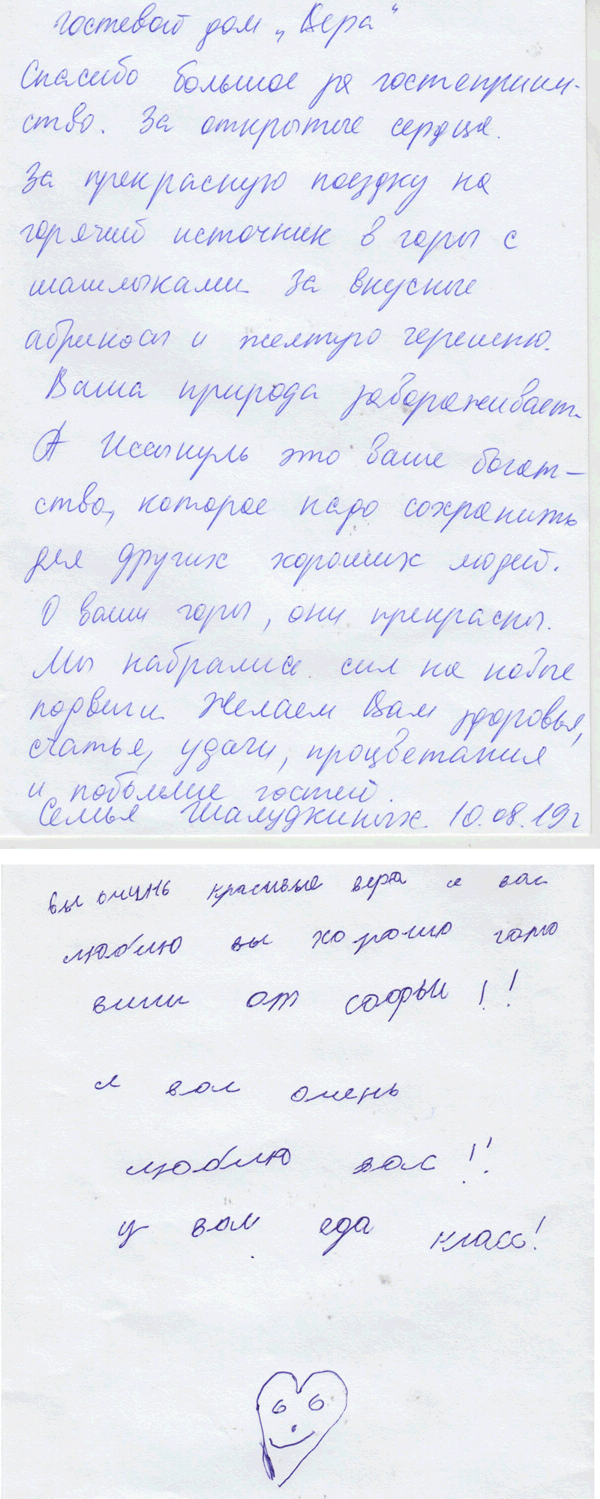 гостевой дом „Вера"
Спасибо большое за гостеприим-
ство. За открытые сердца.
За прекрасную поездку на
горячий источник в горы с
шашлыками. За вкусные
абрикосы и желтую черешню.
Ваша природа завораживает.
А Иссыкуль это ваше богат-
ство, которое надо сохранить
для других хороших людей.
О ваши горы, они прекрасны.
Мы набрались сил на новые
подвиги. Желаем Вам здоровья,
счастья, удачи, процветания
и побольше гостей.
Семья Шалуджиных. 10.08.19г
вы очунь красивые вера я вас
люблю вы хорошо гото
вили от софьи!!
я вам очень
люблю вас!!
у вам еда класс!